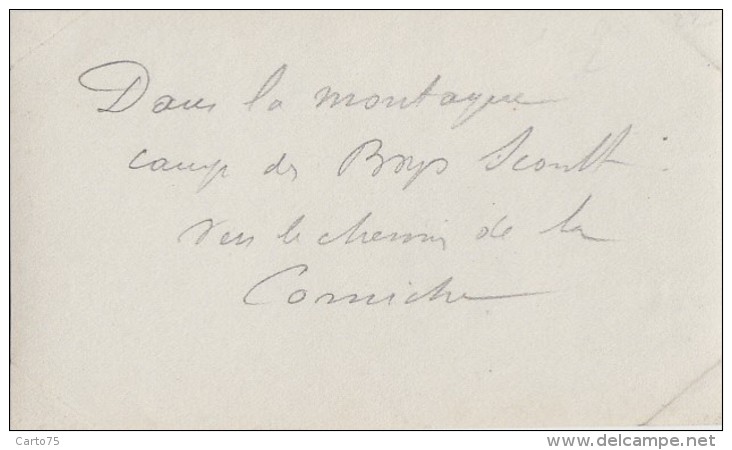 Dans la montagne
camp des Boys Scoutt
vers le chemin de la
Corniche
Carto75
www.delcampe.net